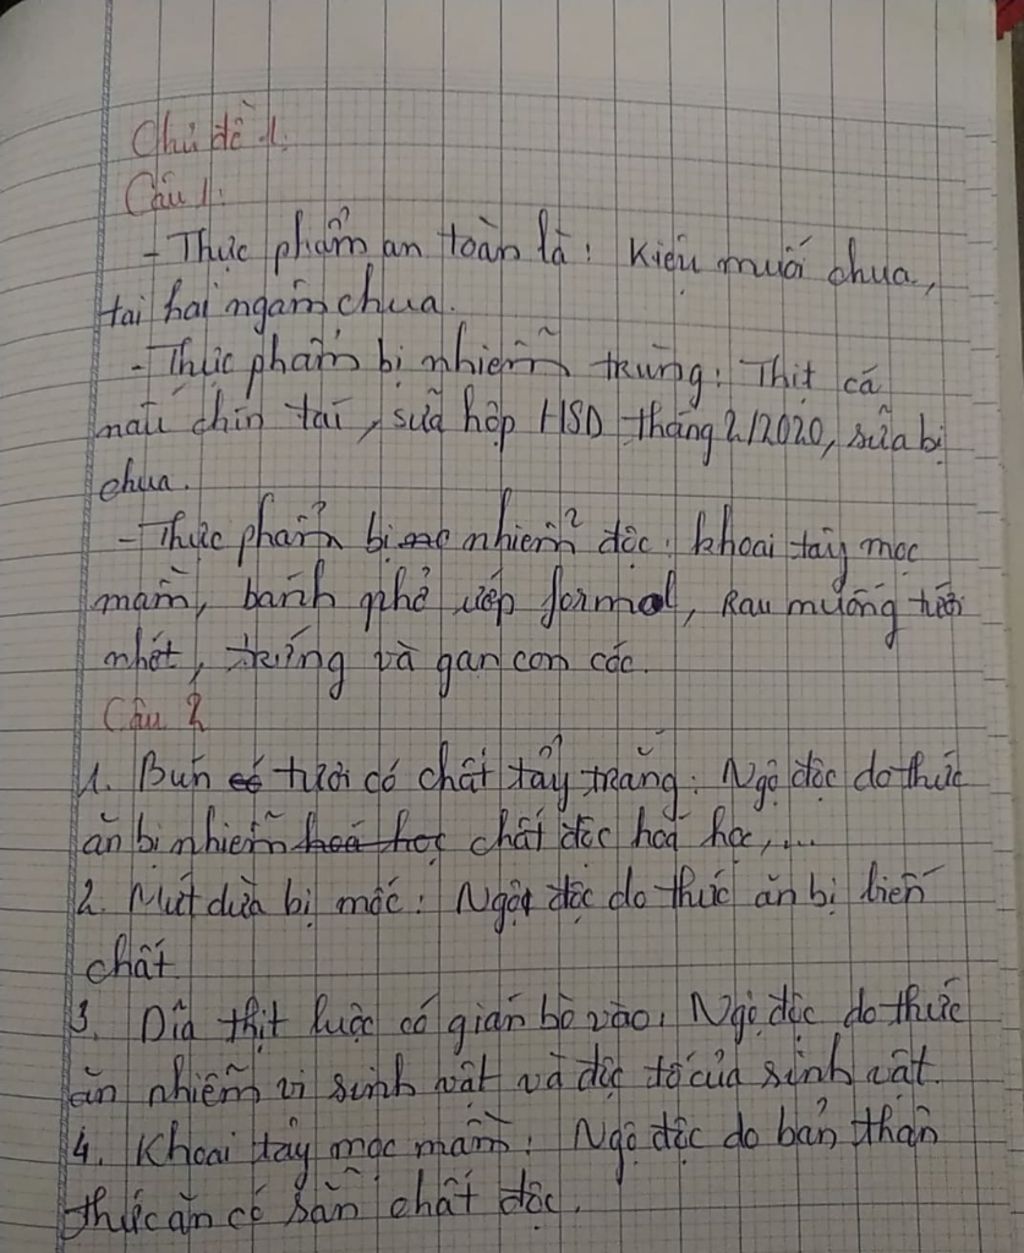 Chủ đề 1:
Câu 1:
- Thực phẩm an toàn là: Kiệu muối chua,
tai hai ngâm chua.
- Thực phẩm bị nhiễm trùng: Thịt cá
nấu chín tái, sữa hộp HSD tháng 2/2020, sữa bị
chua.
- Thực phẩm bị nhiễm độc: khoai tây mọc
mầm, bánh phở ướp formol, Rau muống tưới
nhớt, trứng và gan con cóc.
Câu 2
1. Bún có tươi có chất tẩy trắng: Ngộ độc do thức
ăn bị nhiễm hoá học chất độc hoá học,...
2. Mứt dừa bị mốc: Ngộ độc do thức ăn bị biến
chất.
3. Dĩa thịt luộc có gián bò vào: Ngộ độc do thức
ăn nhiễm vi sinh vật và độc tố của sinh vật.
4. Khoai tây mọc mầm: Ngộ độc do bản thân
thức ăn có sẵn chất độc.